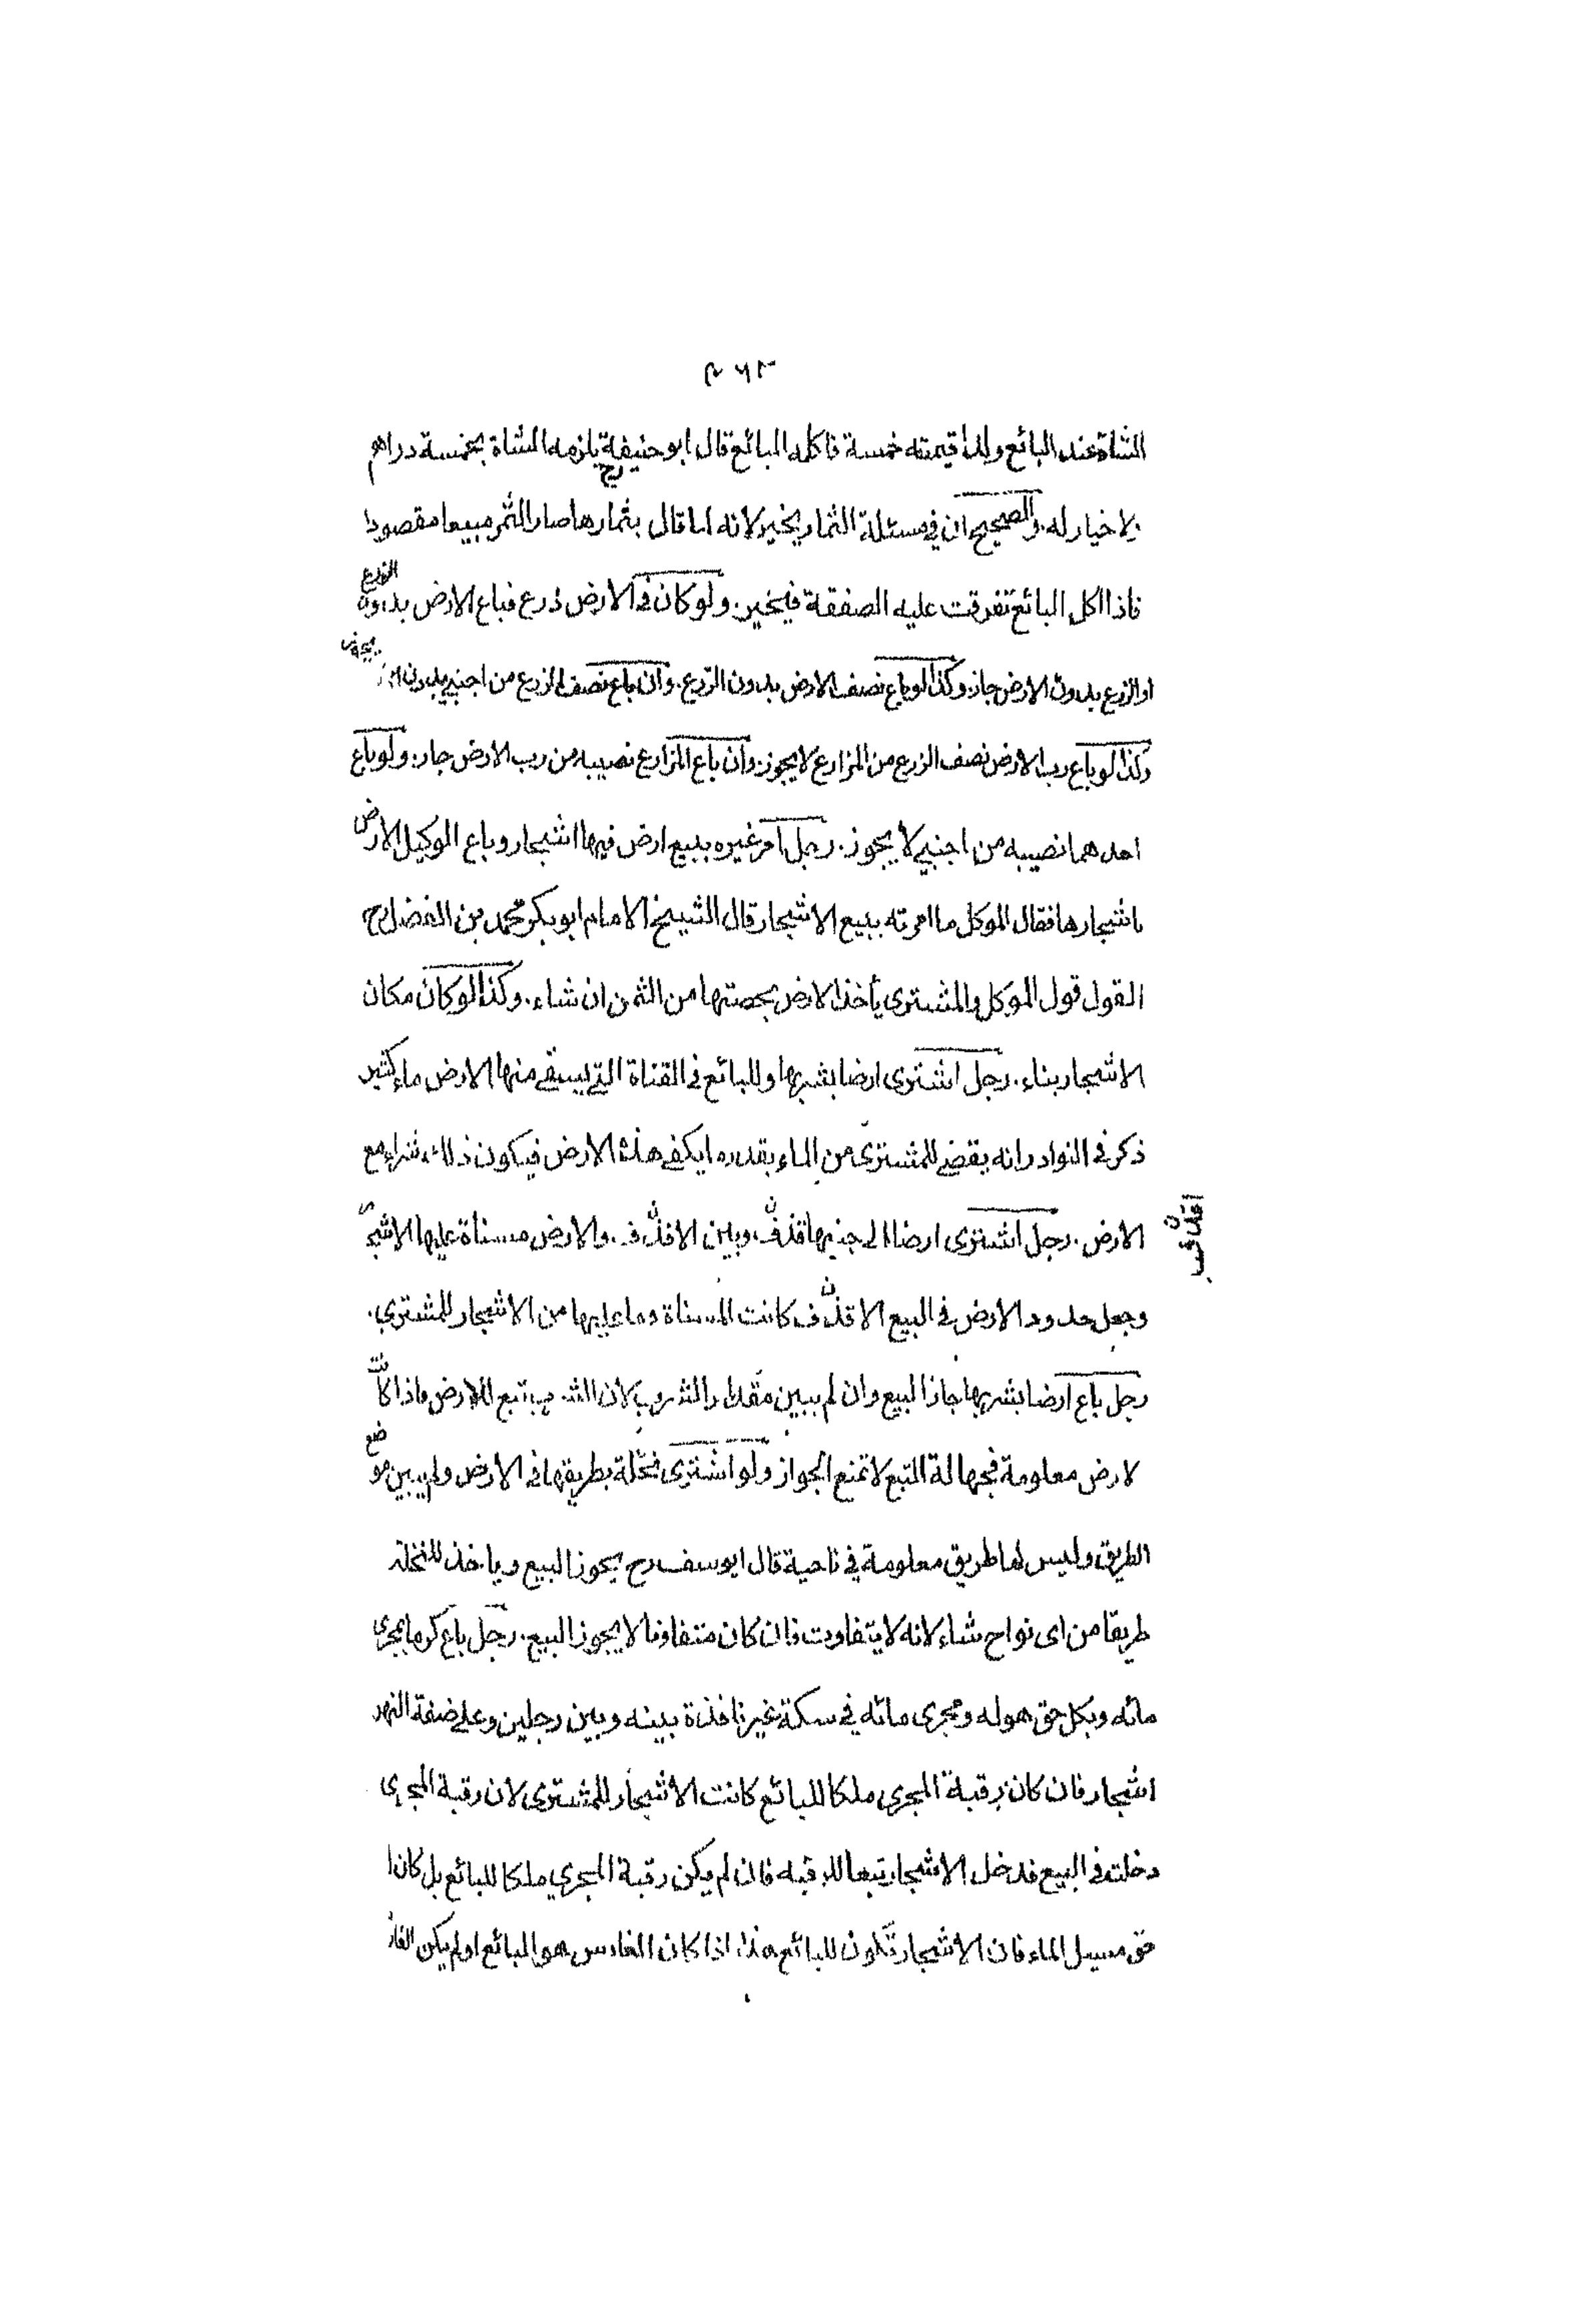 الشاة عند البائع ولدا قيمته خمسة فاكله البائع قال ابو حنيفة رح يلزمه الشاة بخمسة دراهم
ولا خيار له. والصحيح ان في مسئلة الثمار يخير لانه لما قال بثمارها صار الثمر مبيعا مقصودا
فاذا اكل البائع تفرقت عليه الصفقة فيخير. ولو كان في الارض زرع فباع الارض بدون الزرع
او الزرع بدون الارض جاز. وكذا لو باع نصف الارض بدون الزرع. وان باع نصف الزرع من اجنبي بدون
وكذا لو باع رب الارض نصف الزرع من المزارع لا يجوز. وان باع المزارع نصيبه من رب الارض جاز. ولو باع
احدهما نصيبه من اجنبي لا يجوز. رجل امر غيره ببيع ارض فيها اشجار وباع الوكيل الارض
باشجارها فقال الموكل ما امرته ببيع الاشجار قال الشيخ الامام ابو بكر محمد بن الفضل رح
القول قول الموكل والمشترى يأخذ الارض بحصتها من الثمن ان شاء. وكذا لو كان مكان
الاشجار بناء. رجل اشترى ارضا بشربها وللبائع فى القناة التي يسقي منها الارض ماء كثير
ذكر فى النوادر انه يقضي للمشترى من الماء بقدر ما يكفي هذه الارض فيكون ذلك شراء مع
الارض. رجل اشترى ارضا الى جنبها وبين والارض مسناة عليها الاشجار
وجعل حدود الارض فى البيع كانت المسناة وما عليها من الاشجار للمشتري.
رجل باع ارضا بشربها جاز البيع وان لم يبين مقدار الشرب لان الشرب تبع للارض فاذا كانت
لارض معلومة فجهالة التبع لا تمنع الجواز ولو اشترى نخلة بطريقها فى الارض ولم يبين موضع
الطريق وليس لها طريق معلومة في ناحية قال ابو يوسف رح يجوز البيع وياخذ للنخلة
طريقا من اى نواح شاء لانه لا يتفاوت فان كان متفاوتا لا يجوز البيع. رجل باع كرما بمجرى
مائه وبكل حق هو له ومجرى مائه في سكة غير نافذة بينه وبين رجلين وعلى ضفة النهر
اشجار فان كان رقبة المجرى ملكا للبائع كانت الاشجار للمشترى لان رقبة المجرى
دخلت فى البيع فدخل الاشجار تبعا للرقبة فان لم يكن رقبة المجرى ملكا للبائع بل كان ا
حق مسيل الماء فان الاشجار تكون للبائع هذا اذا كان الغارس هو البائع او لم يكن الغار